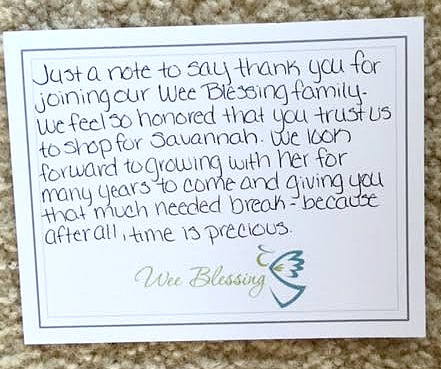 Just a note to say thank you for
joining our Wee Blessing family.
We feel so honored that you trust us
to shop for Savannah. We look
forward to growing with her for
many years to come and giving you
that much needed break - because
after all, time is precious.
Wee Blessing